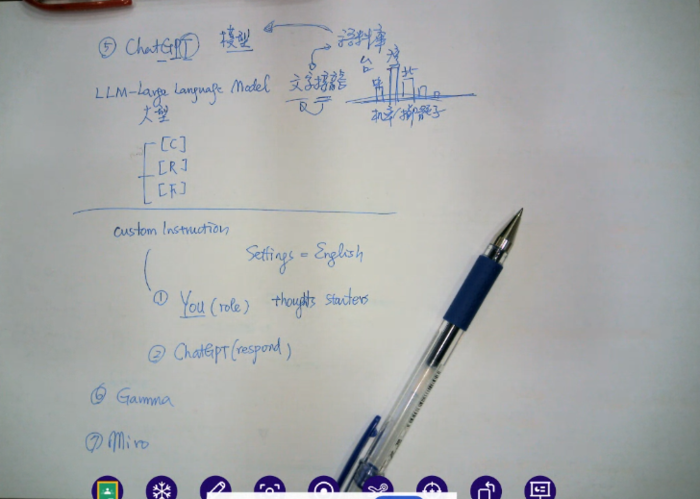 ⑤ ChatGPT 模型 語料庫
LLM-Large Language Model 文字接龍
大型
台 灣 北
机率/擲骰子
[C]
[R]
[F]
custom Instruction
Settings = English
① You (role) thoughts starters
② ChatGPT (respond)
⑥ Gamma
⑦ Miro